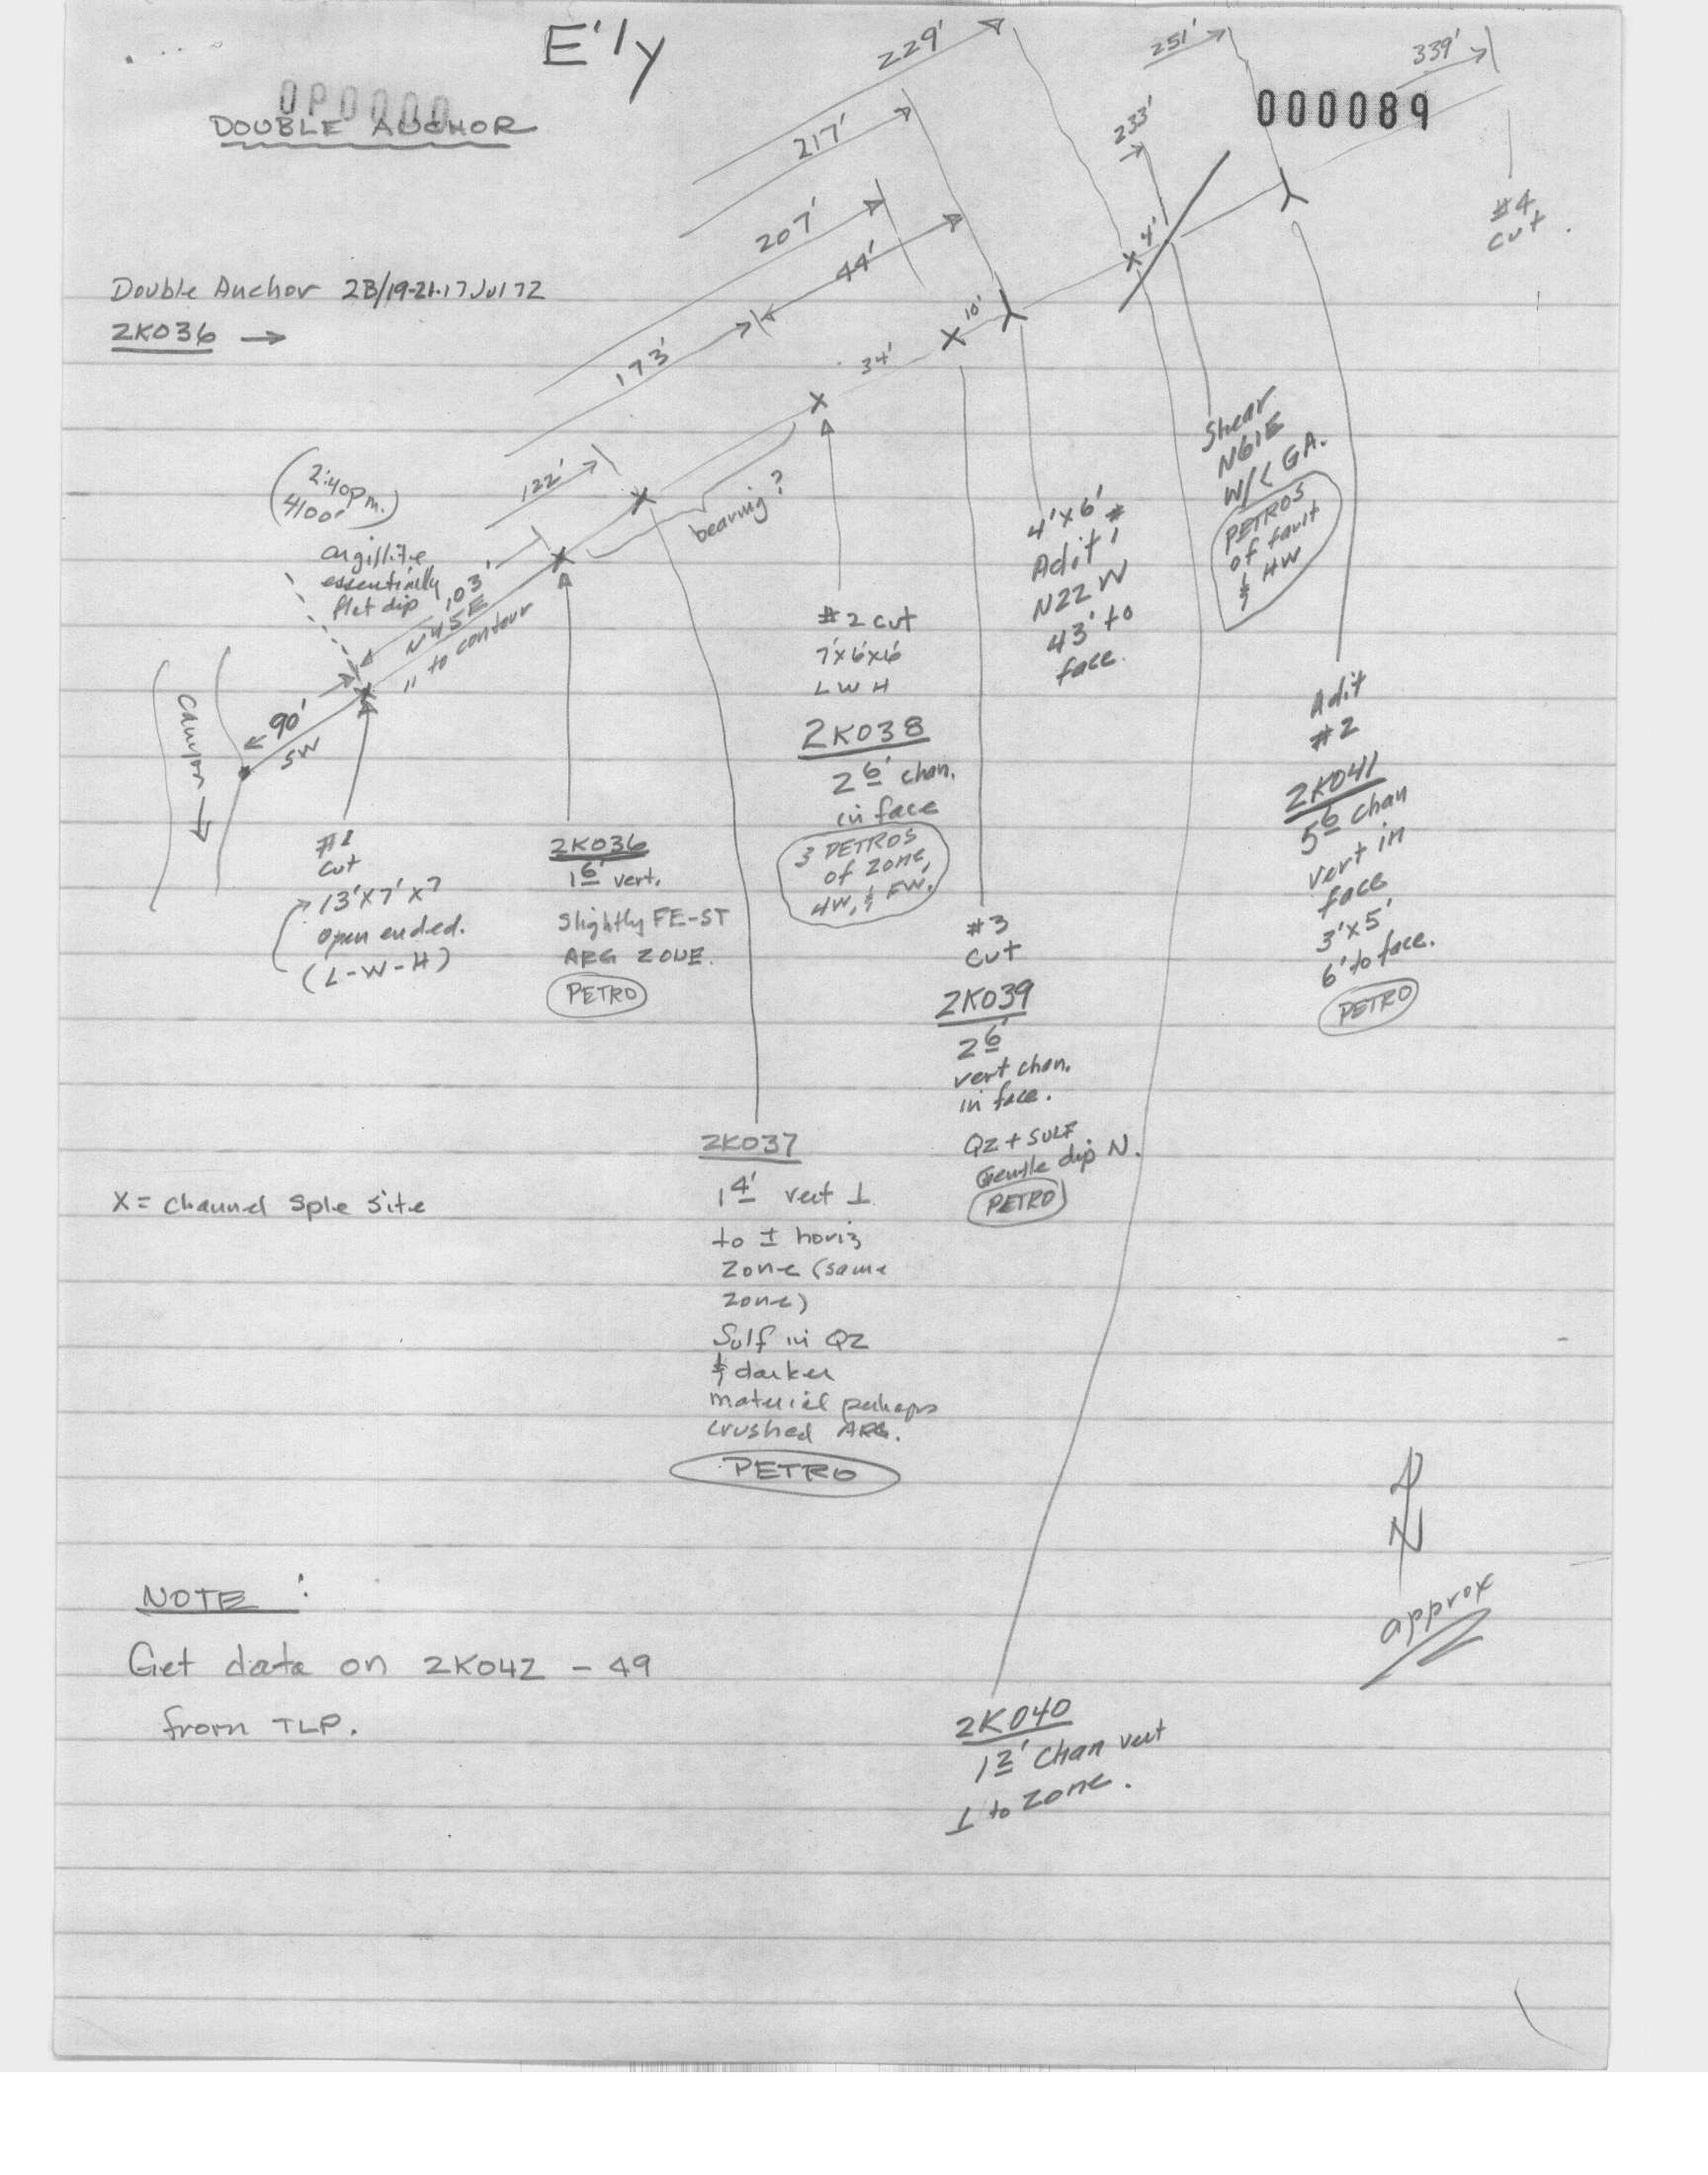 E'ly
000089
DOUBLE ANCHOR
229'
251'
339'
217'
233'
207'
44'
4'
#4
cut.
Double Anchor 2B/19-21·17Jul72
2K036 →
173'
10'
34'
122'
bearing?
(2:40pm.
4100')
argillite
essentially
flat dip
103'
N45E
" to contour
90'
SW
Canyon →
Shear
N61E
W/< GA.
PETROS
of fault
& HW
4'x6'
Adit #1
N22W
43' to
face.
#2 cut
7'x6'x6'
L W H
2K038
2 6' chan.
in face
3 PETROS
of zone,
HW, & FW.
Adit
#2
2K041
5 6 chan
vert in
face
3'x5'
6' to face.
PETRO
#1
cut
13'x7'x7
open ended.
(L-W-H)
2K036
1 6' vert.
Slightly FE-ST
ARG ZONE.
PETRO
#3
cut
2K039
2 6'
vert chan.
in face.
Qz + SULF
Gentle dip N.
PETRO
2K037
1 4' vert ⊥
to ± horiz
zone (same
zone)
Sulf in Qz
& darker
material perhaps
crushed ARG.
PETRO
X = Channel Sple Site
N
approx
NOTE:
Get data on 2K042 - 49
from TLP.
2K040
1 2' Chan vert
⊥ to zone.